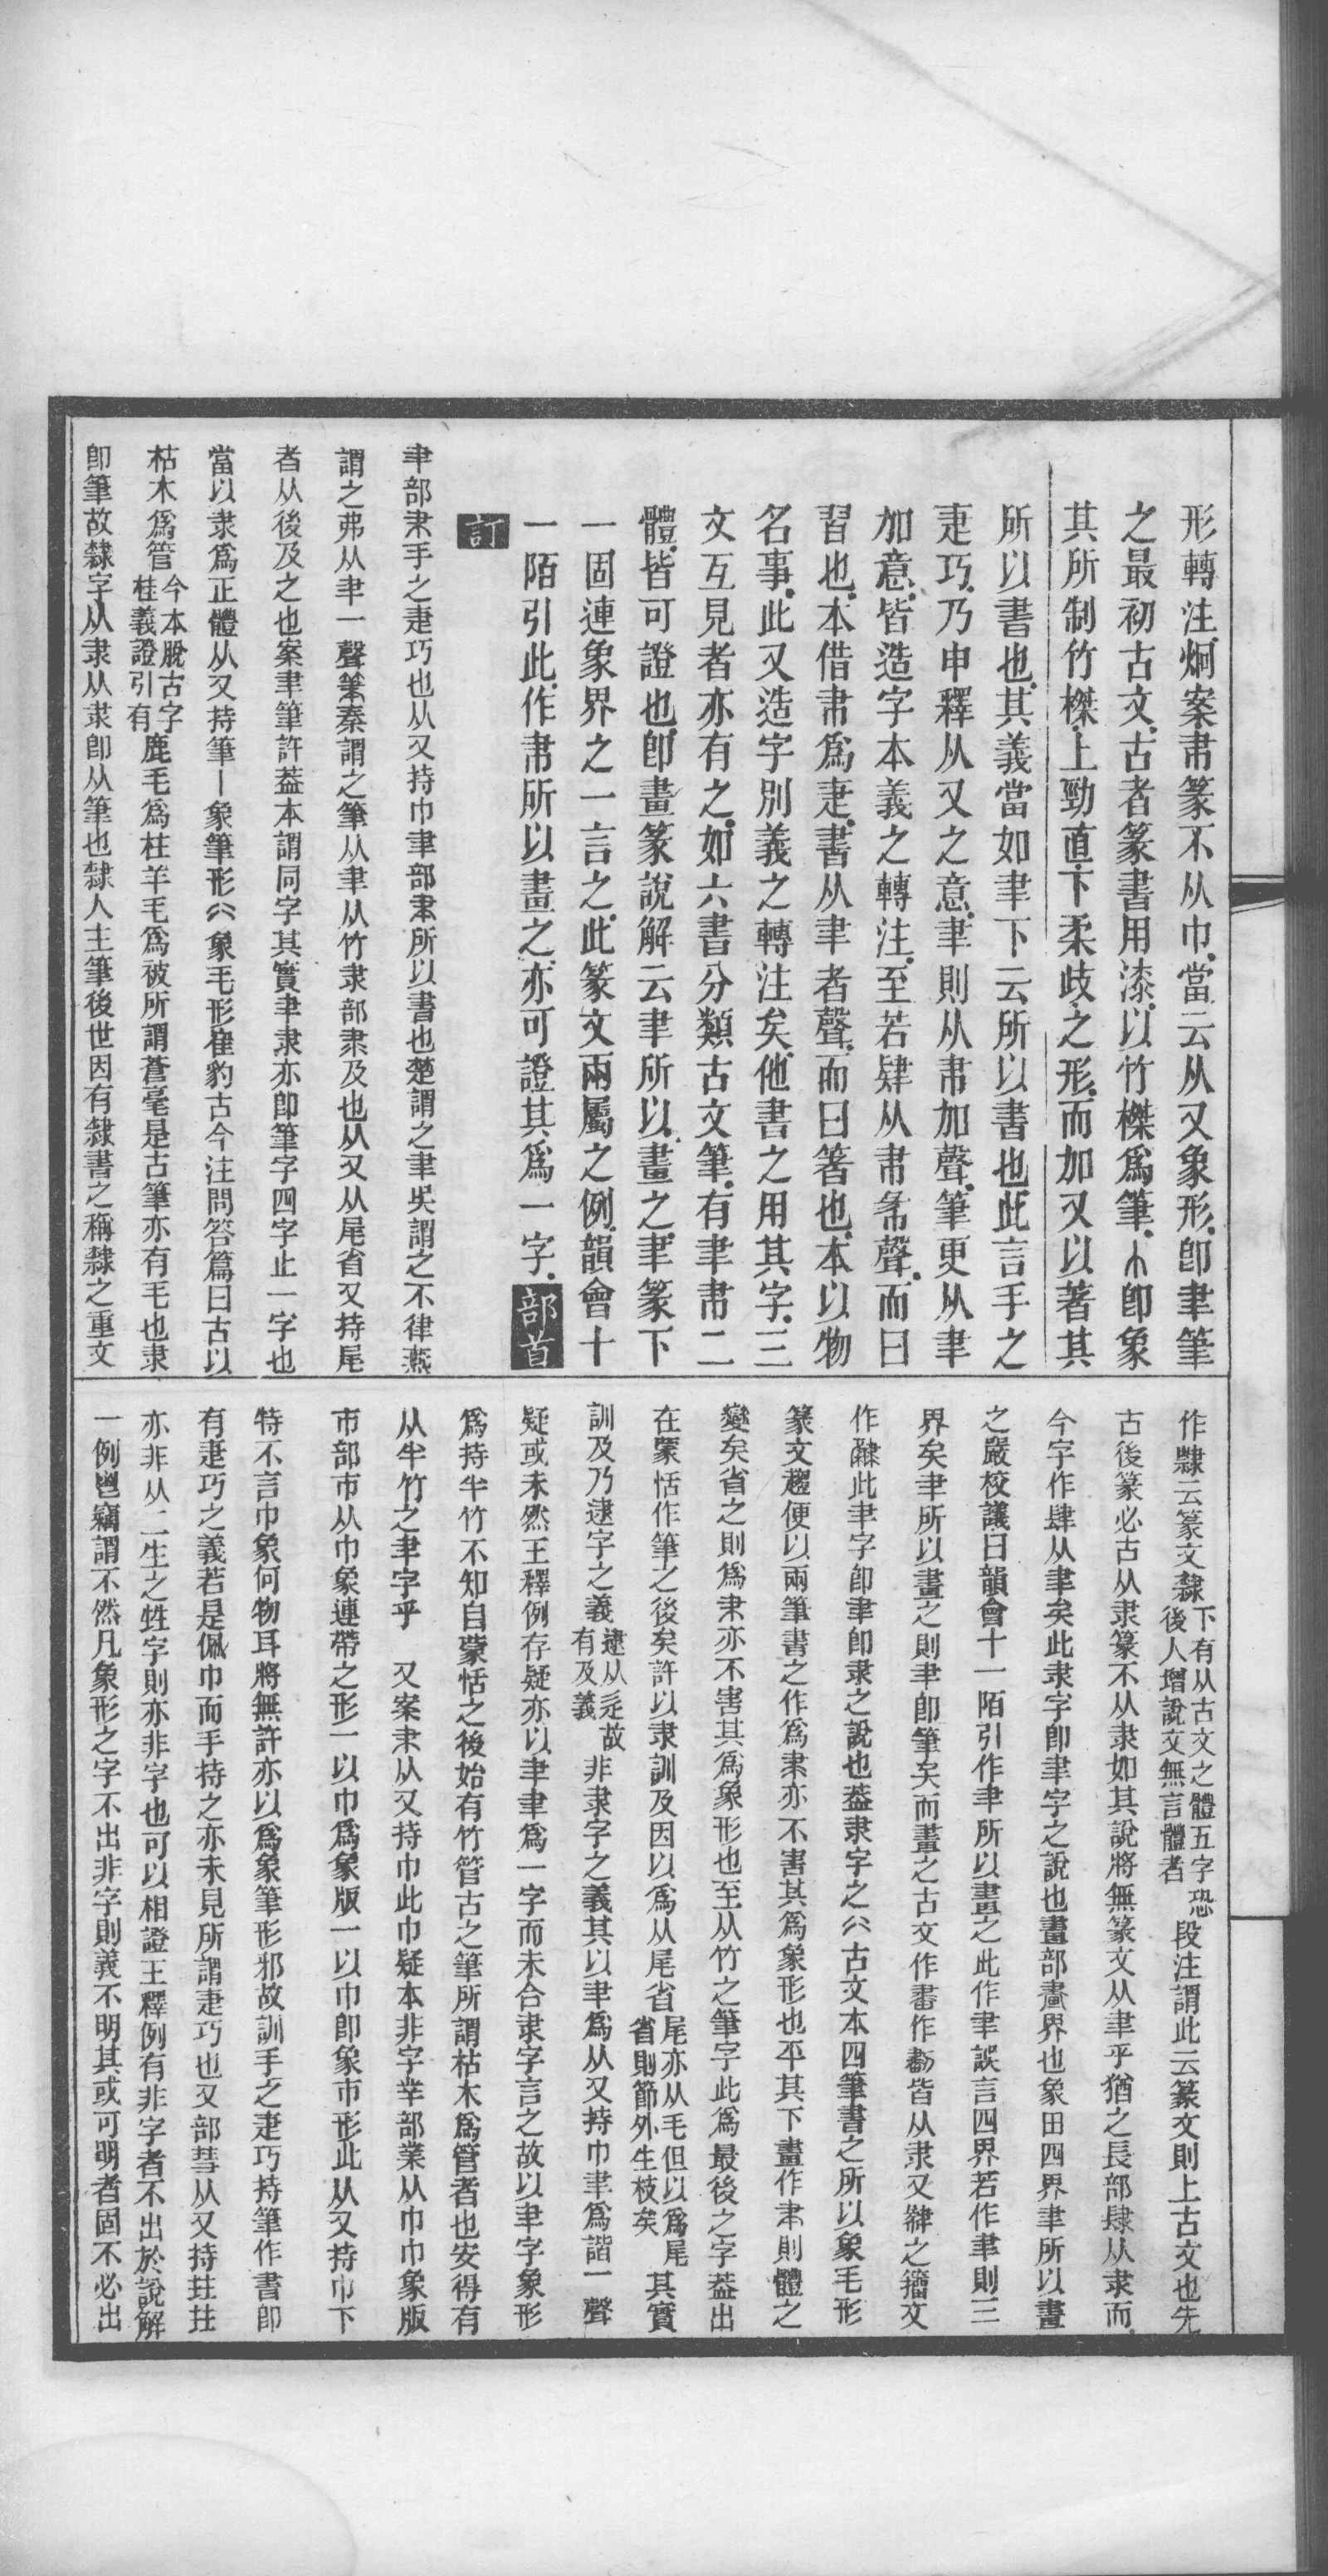 形轉注炯案𦘒篆不从巾當云从又象形卽聿筆
之最初古文古者篆書用漆以竹榤爲筆𣎳卽象
其所制竹榤上勁直下柔歧之形而加又以著其
所以書也其義當如聿下云所以書也此言手之
疌巧乃申釋从又之意聿則从𦘒加聲筆更从聿
加意皆造字本義之轉注至若肄从𦘒㣇聲而曰
習也本借𦘒爲疌書从聿者聲而曰箸也本以物
名事此又造字別義之轉注矣他書之用其字三
文互見者亦有之如六書分類古文筆有聿𦘒二
體皆可證也卽畫篆說解云聿所以畫之聿篆下
一固連象界之一言之此篆文兩屬之例韻會十
一陌引此作𦘒所以畫之亦可證其爲一字部首
訂
聿部𦘒手之疌巧也从又持巾聿部聿所以書也楚謂之聿吳謂之不律燕
謂之弗从聿一聲筆秦謂之筆从聿从竹隶部隶及也从又从尾省又持尾
者从後及之也案聿筆許葢本謂同字其實聿隶亦卽筆字四字止一字也
當以隶爲正體从又持筆丨象筆形八象毛形崔豹古今注問答篇曰古以
枯木爲管今本脫古字桂義證引有鹿毛爲柱羊毛爲被所謂蒼毫是古筆亦有毛也隶
卽筆故隸字从隶从隶卽从筆也隸人主筆後世因有隸書之稱隸之重文
作隸云篆文隸下有从古文之體五字恐後人增說文無言體者段注謂此云篆文則上古文也先
古後篆必古从隶篆不从隶如其說將無篆文从聿乎猶之長部肆从隶而
今字作肆从聿矣此隶字卽聿字之說也畫部畫界也象田四界聿所以畫
之嚴校議曰韻會十一陌引作聿所以畫之此作聿誤言四界若作聿則三
界矣聿所以畫之則聿卽筆矣而畫之古文作書作劃皆从隶又肄之籀文
作肄此聿字卽聿卽隶之說也葢隶字之八古文本四筆書之所以象毛形
篆文趨便以兩筆書之作爲隶亦不害其爲象形也平其下畫作𦘒則體之
變矣省之則爲𦘒亦不害其爲象形也至从竹之筆字此爲最後之字葢出
在蒙恬作筆之後矣許以隶訓及因以爲从尾省尾亦从毛但以爲尾省則節外生枝矣其實
訓及乃逮字之義逮从辵故有及義非隶字之義其以聿爲从又持巾聿爲諧一聲
疑或未然王釋例存疑亦以聿聿爲一字而未合隶字言之故以聿字象形
爲持半竹不知自蒙恬之後始有竹管古之筆所謂枯木爲管者也安得有
从半竹之聿字乎　又案𦘒从又持巾此巾疑本非字丵部業从巾巾象版
巿部巿从巾象連帶之形一以巾爲象版一以巾卽象巿形此从又持巾下
特不言巾象何物耳將無許亦以爲象筆形邪故訓手之疌巧持筆作書卽
有疌巧之義若是佩巾而手持之亦未見所謂疌巧也又部彗从又持𤯓𤯓
亦非从二生之甡字則亦非字也可以相證王釋例有非字者不出於說解
一例鬯竊謂不然凡象形之字不出非字則義不明其或可明者固不必出